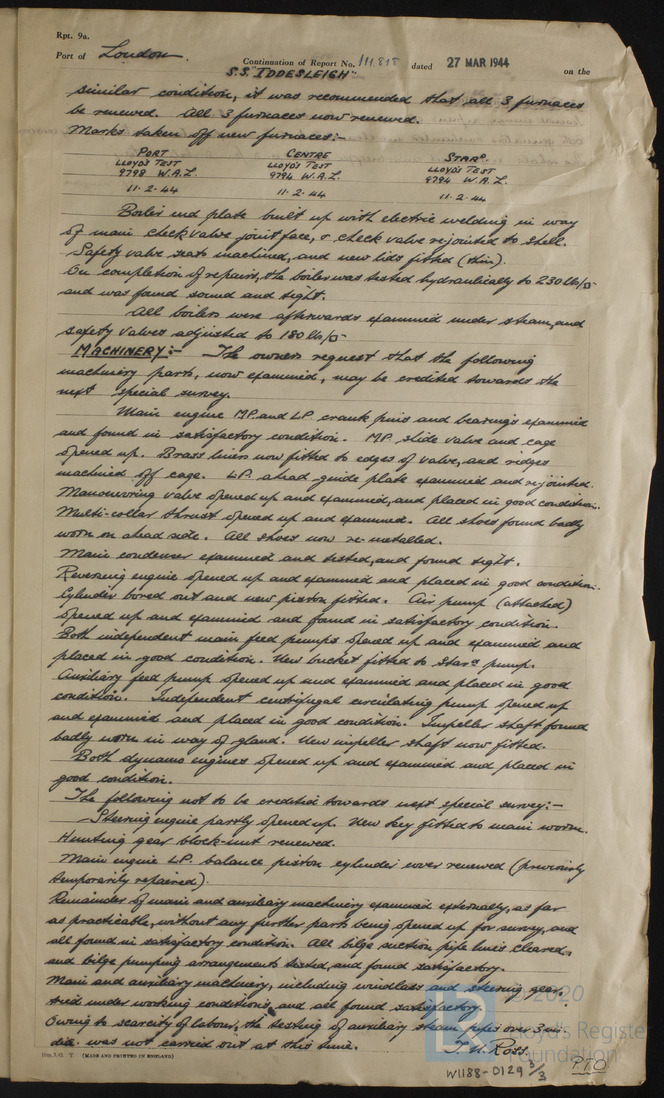 Rpt. 9a.
Port of London.
Continuation of Report No. 111,818 dated 27 MAR 1944 on the
S.S. "IDDESLEIGH"
similar condition, it was recommended that all 3 furnaces
be renewed. All 3 furnaces now renewed.
Marks taken off new furnaces:-
PORT CENTRE STARD.
LLOYD'S TEST LLOYD'S TEST LLOYD'S TEST
9798 W.A.L. 9794 W.A.L. 9794 W.A.L.
11-2-44 11-2-44 11-2-44
Boiler end plate built up with electric welding in way
of main check valve joint face, & check valve rejointed to shell.
Safety valve seats machined, and new lids fitted (thin).
On completion of repairs, the boiler was tested hydraulically to 230 lb/□"
and was found sound and tight.
All boilers were afterwards examined under steam, and
safety valves adjusted to 180 lb/□"
MACHINERY:- The owners request that the following
machinery parts, now examined, may be credited towards the
next special survey.
Main engine MP. and LP. crank pins and bearings examined
and found in satisfactory condition. MP. slide valve and cage
opened up. Brass liners now fitted to edges of valve, and ridges
machined off cage. LP. ahead guide plate examined and rejointed.
Manoeuvring valve opened up and examined, and placed in good condition.
Multi-collar thrust opened up and examined. All shoes found badly
worn on ahead side. All shoes now re-metalled.
Main condenser examined and tested, and found tight.
Reversing engine opened up and examined and placed in good condition.
Cylinder bored out and new piston fitted. Air pump (attached)
opened up and examined and found in satisfactory condition.
Both independent main feed pumps opened up and examined and
placed in good condition. New bucket fitted to Stard pump.
Auxiliary feed pump opened up and examined and placed in good
condition. Independent centrifugal circulating pump opened up
and examined and placed in good condition. Impeller shaft found
badly worn in way of gland. New impeller shaft now fitted.
Both dynamo engines opened up and examined and placed in
good condition.
The following not to be credited towards next special survey:-
Steering engine partly opened up. New key fitted to main worm.
Hunting gear block-nut renewed.
Main engine LP. balance piston cylinder cover renewed (previously
temporarily repaired).
Remainder of main and auxiliary machinery examined externally, as far
as practicable, without any further parts being opened up for survey, and
all found in satisfactory condition. All bilge suction pipe lines cleared,
and bilge pumping arrangements tested and found satisfactory.
Main and auxiliary machinery, including windlass and steering gear,
tried under working conditions, and all found satisfactory.
Owing to scarcity of labour, the testing of auxiliary steam pipes over 3 ins.
dia. was not carried out at this time.
T. H. Ross.
(MADE AND PRINTED IN ENGLAND)
W1188-0129 3/3
P.T.O
© 2020
Lloyd's Register
Foundation